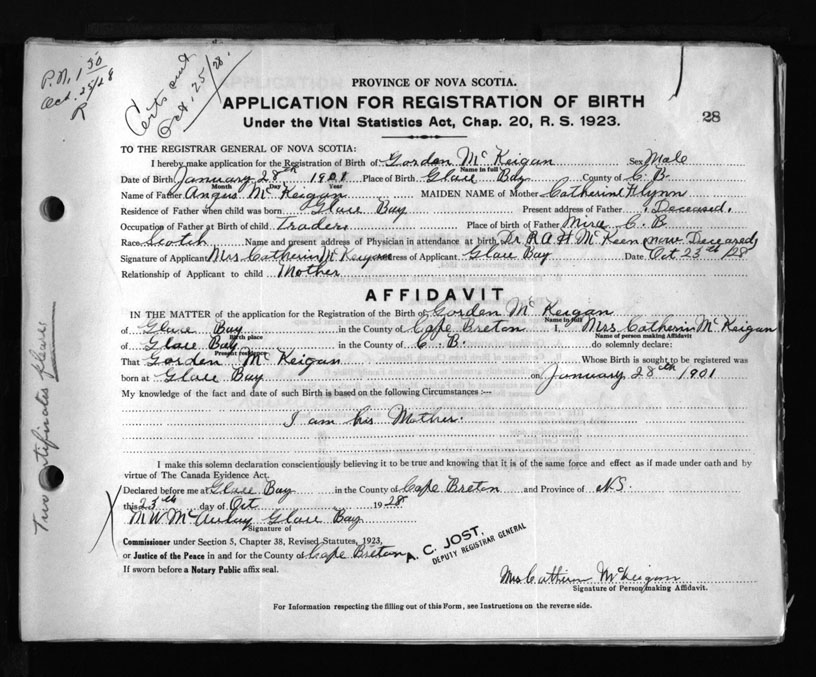 P.N. 1 50
Oct. 25/28
Certs sent
Oct. 25/28.
PROVINCE OF NOVA SCOTIA.
APPLICATION FOR REGISTRATION OF BIRTH
Under the Vital Statistics Act, Chap. 20, R. S. 1923.
28
TO THE REGISTRAR GENERAL OF NOVA SCOTIA:
I hereby make application for the Registration of Birth of Gordon McKeigan Sex Male
Name in full
Date of Birth January 28th 1901 Place of Birth Glace Bay County of C. B.
Month Day Year
Name of Father Angus McKeigan MAIDEN NAME of Mother Catherine Flynn
Residence of Father when child was born Glace Bay Present address of Father Deceased.
Occupation of Father at Birth of child Trader Place of birth of Father Mira C. B.
Race Scotch Name and present address of Physician in attendance at birth Dr. R A H McKeen (now Deceased)
Signature of Applicant Mrs Catherin McKeigan Address of Applicant Glace Bay Date Oct 23th/28
Relationship of Applicant to child Mother
AFFIDAVIT
IN THE MATTER of the application for the Registration of the Birth of Gorden McKeigan
Name in full
of Glace Bay in the County of Cape Breton I, Mrs Catherin McKeigan
Birth place Name of person making Affidavit
of Glace Bay in the County of C. B. do solemnly declare:
Present residence
That Gorden McKeigan Whose Birth is sought to be registered was
born at Glace Bay on January 28th 1901
My knowledge of the fact and date of such Birth is based on the following Circumstances :—
I am his Mother.
I make this solemn declaration conscientiously believing it to be true and knowing that it is of the same force and effect as if made under oath and by
virtue of The Canada Evidence Act.
Declared before me at Glace Bay in the County of Cape Breton and Province of N.S.
this 23th day of Oct 1928
M W McAulay Glace Bay
Signature of
Commissioner under Section 5, Chapter 38, Revised Statutes, 1923,
or Justice of the Peace in and for the County of Cape Breton
If sworn before a Notary Public affix seal.
A. C. JOST,
DEPUTY REGISTRAR GENERAL
Mrs Catherin McKeigan
Signature of Person making Affidavit.
For Information respecting the filling out of this Form, see Instructions on the reverse side.
Two certificates please